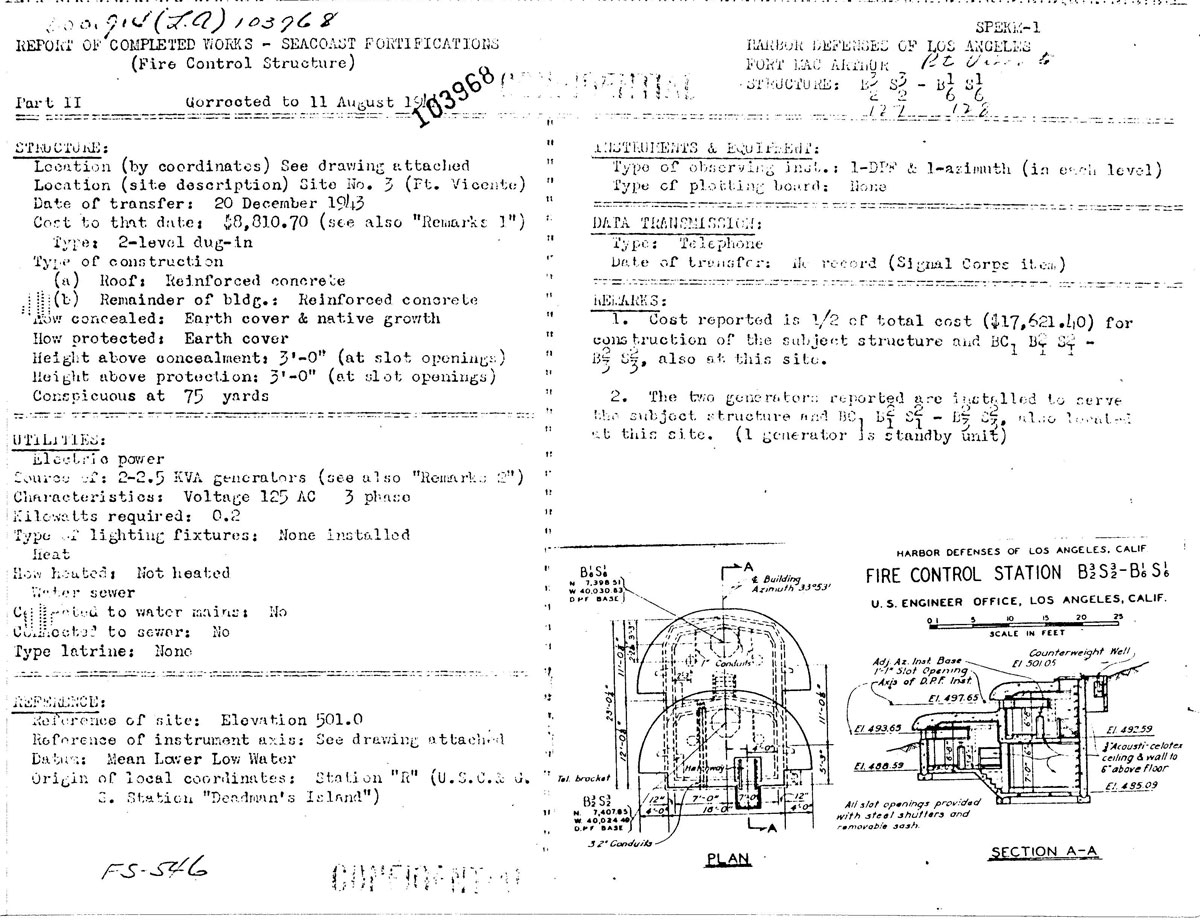 103968
REPORT OF COMPLETED WORKS - SEACOAST FORTIFICATIONS
(Fire Control Structure)
Part II Corrected to 11 August
103968
CONFIDENTIAL
SPEKM-1
HARBOR DEFENSES OF LOS ANGELES
FORT MAC ARTHUR Pt Vicente
STRUCTURE: B 3/2 S 3/2 - B 1/6 S 1/6
127 128
STRUCTURE:
Location (by coordinates) See drawing attached
Location (site description) Site No. 3 (Pt. Vicente)
Date of transfer: 20 December 1943
Cost to that date: $8,810.70 (see also "Remarks 1")
Type: 2-level dug-in
Type of construction
(a) Roof: Reinforced concrete
(b) Remainder of bldg.: Reinforced concrete
How concealed: Earth cover & native growth
How protected: Earth cover
Height above concealment: 3'-0" (at slot openings)
Height above protection: 3'-0" (at slot openings)
Conspicuous at 75 yards
UTILITIES:
Electric power
Source of: 2-2.5 KVA generators (see also "Remarks 2")
Characteristics: Voltage 125 AC 3 phase
Kilowatts required: 0.2
Type of lighting fixtures: None installed
Heat
How heated: Not heated
Water sewer
Connected to water mains: No
Connected to sewer: No
Type latrine: None
REFERENCE:
Reference of site: Elevation 501.0
Reference of instrument axis: See drawing attached
Datum: Mean Lower Low Water
Origin of local coordinates: Station "R" (U.S.C.& G.
S. Station "Deadman's Island")
FS-546
CONFIDENTIAL
INSTRUMENTS & EQUIPMENT:
Type of observing inst.: 1-DPF & 1-azimuth (in each level)
Type of plotting board: None
DATA TRANSMISSION:
Type: Telephone
Date of transfer: No record (Signal Corps item)
REMARKS:
1. Cost reported is 1/2 of total cost ($17,621.40) for
construction of the subject structure and BC1 B 2/1 S 2/1 -
B 2/3 S 2/3, also at this site.
2. The two generators reported are installed to serve
the subject structure and BC1 B 2/1 S 2/1 - B 2/3 S 2/3, also located
at this site. (1 generator is standby unit)
B 1/6 S 1/6
N 7,398.51
W 40,030.83
D.P.F BASE
A
℄ Building
Azimuth 33°53'
1" Conduits
11'-0½"
23'-0½"
12'-0½"
11'-0½"
5'-3"
Hatchway
Tel. bracket
B 3/2 S 3/2
N. 7,407.85
W. 40,024.48
D.P.F BASE
12" 7'-0" 7'-0" 12"
4'-0" 18'-0" 4'-0"
3 2" Conduits
A
PLAN
HARBOR DEFENSES OF LOS ANGELES, CALIF
FIRE CONTROL STATION B 3/2 S 3/2 - B 1/6 S 1/6
U.S. ENGINEER OFFICE, LOS ANGELES, CALIF.
0 1 5 10 15 20 25
SCALE IN FEET
Counterweight Well
El 501.05
Adj. Az. Inst. Base
1'-1" Slot Opening
Axis of D.P.F. Inst.
El. 497.65
El. 493.65
El. 492.59
El. 488.59
Acousti-celotex
ceiling & wall to
6" above floor
El. 485.09
All slot openings provided
with steel shutters and
removable sash.
SECTION A-A